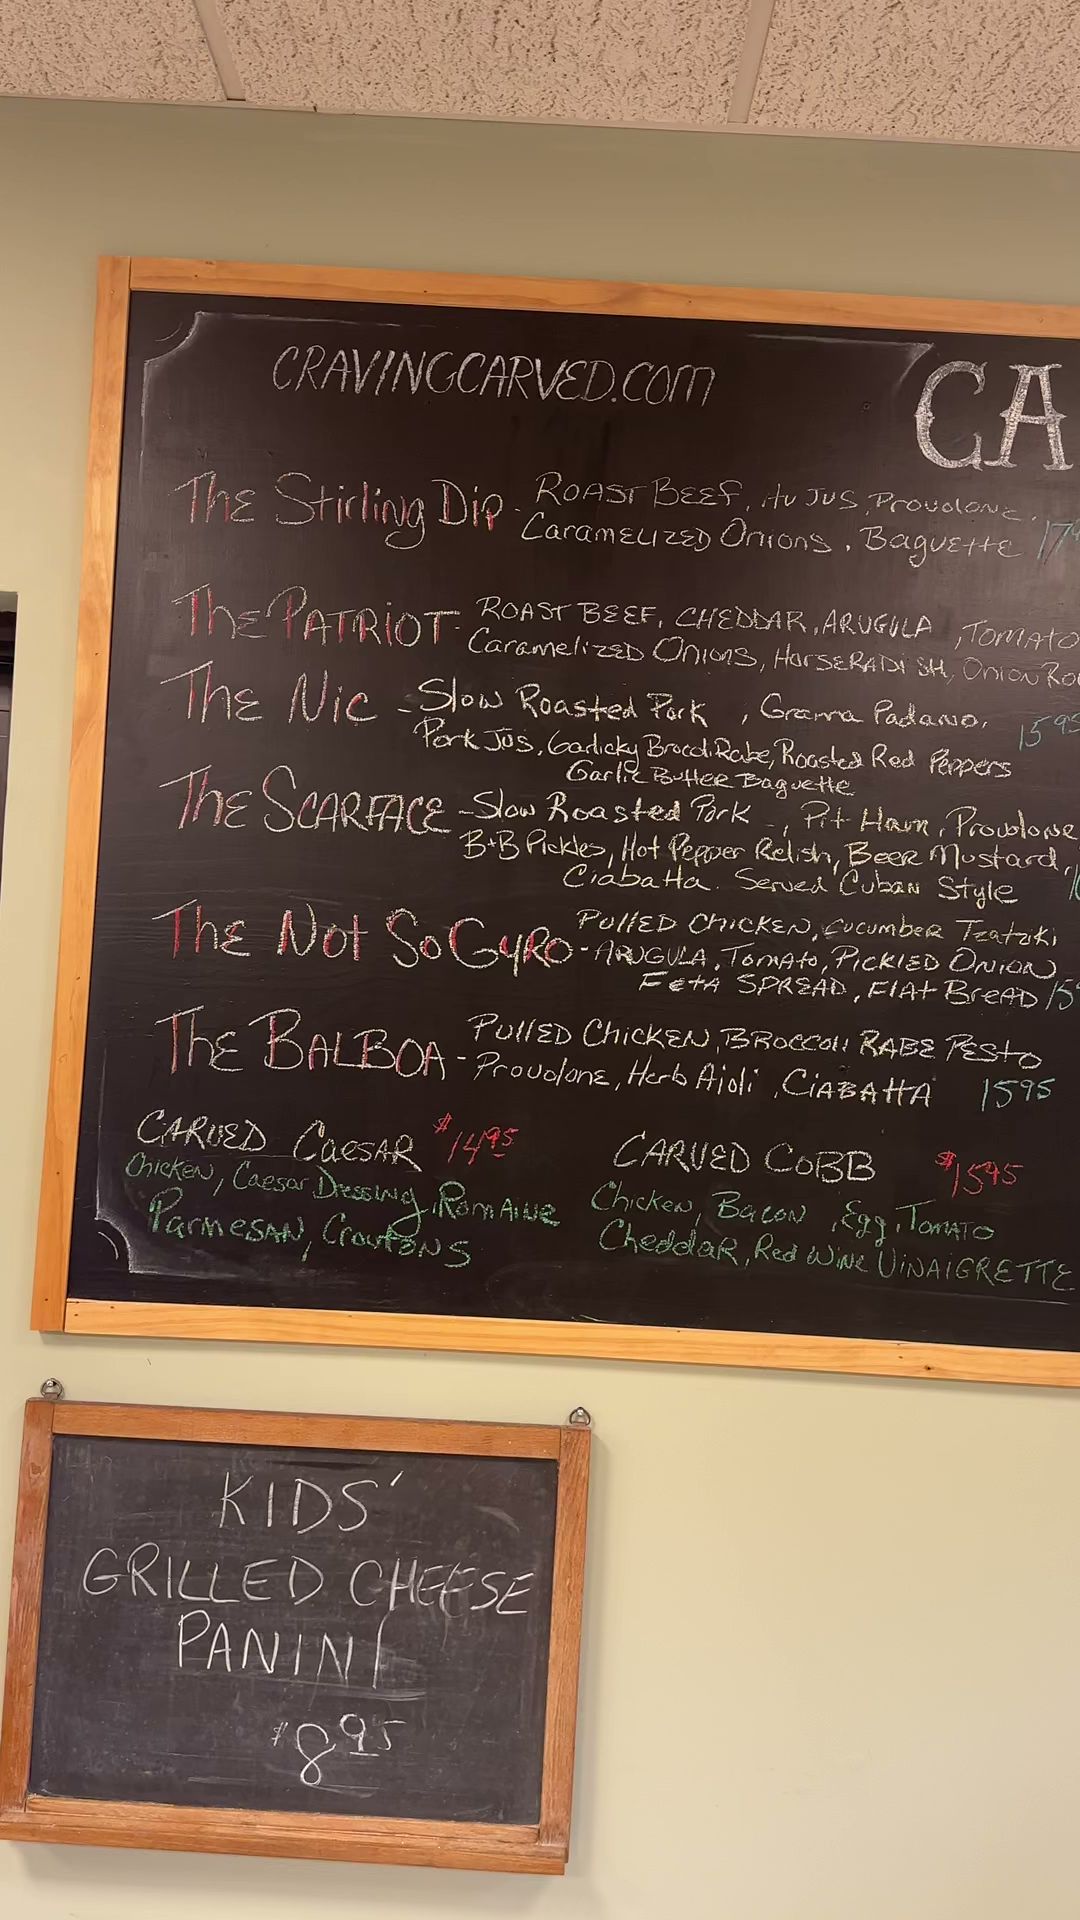 CRAVINGCARVED.COM
CA
The Stirling Dip - ROAST BEEF, AU JUS, Provolone,
Caramelized Onions, Baguette
The PATRIOT - ROAST BEEF, CHEDDAR, ARUGULA, TOMATO
Caramelized Onions, HORSERADISH, Onion
The Nic - Slow Roasted Pork, Grana Padano, 1595
Pork Jus, Garlicky Brocoli Rabe, Roasted Red Peppers
Garlic Butter Baguette
The SCARFACE - Slow Roasted Pork, Pit Ham, Provolone
B+B Pickles, Hot Pepper Relish, Beer Mustard,
Ciabatta. Served Cuban Style
The Not So Gyro - PULLED CHICKEN, Cucumber Tzatziki
ARUGULA, Tomato, PICKLED ONION
Feta SPREAD, Flat Bread
The BALBOA - PULLED CHICKEN, BROCCOLI RABE PESTO
Provolone, Herb Aioli, CIABATTA 1595
CARVED CaesAR $14.95
Chicken, Caesar Dressing, Romaine
Parmesan, Croutons
CARVED COBB $1595
Chicken, Bacon, Egg, Tomato
Cheddar, Red Wine VINAIGRETTE
KIDS'
GRILLED CHEESE
PANINI
$8.95